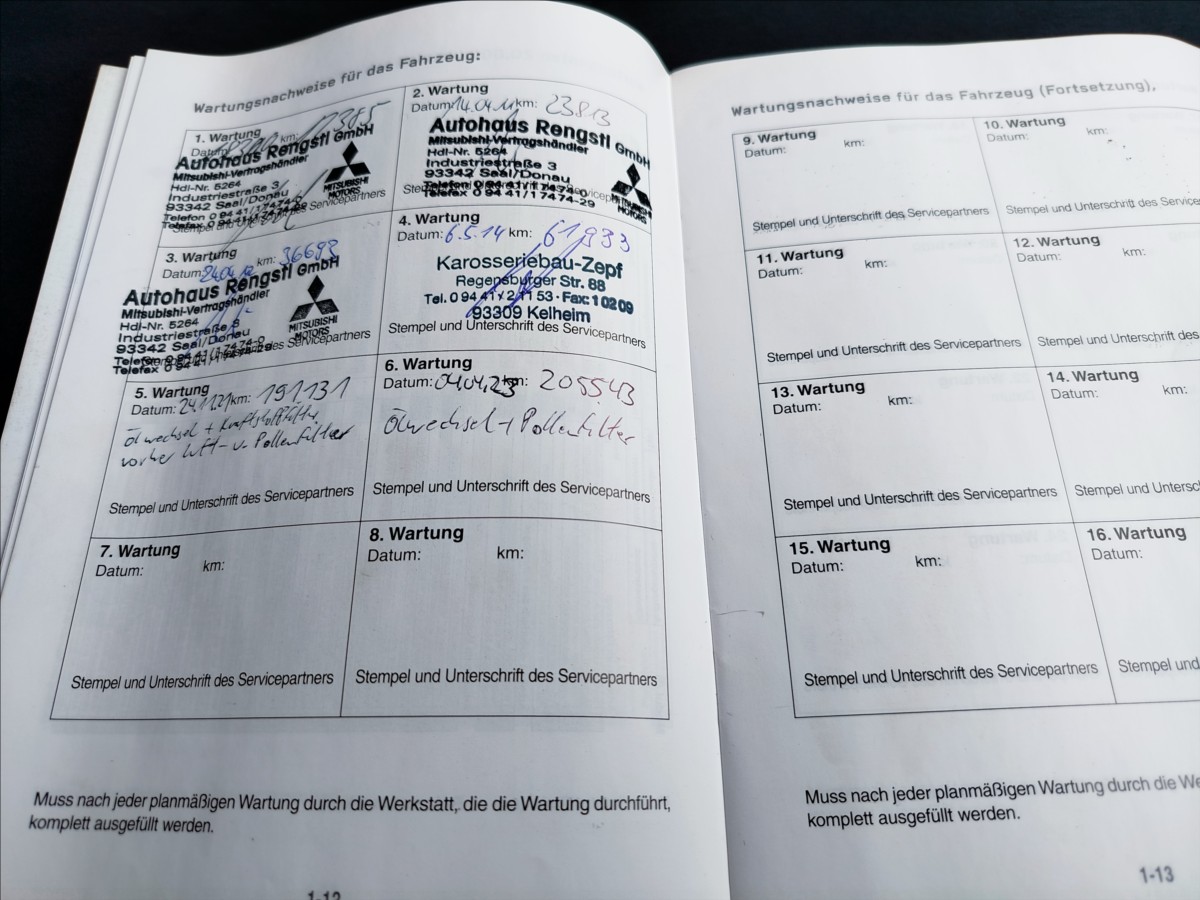 Wartungsnachweise für das Fahrzeug:
1. Wartung
Datum: km:
Autohaus Rengstl GmbH
Mitsubishi-Vertragshändler
Hdl-Nr. 5264
Industriestraße 3
93342 Saal/Donau
Telefon 0 94 41/1 74 74-0
Telefax 0 94 41/1 74 74-29
MITSUBISHI
MOTORS
Stempel und Unterschrift des Servicepartners
2. Wartung
Datum: 14.04.11 km: 23813
Autohaus Rengstl GmbH
Mitsubishi-Vertragshändler
Hdl-Nr. 5264
Industriestraße 3
93342 Saal/Donau
Telefon 0 94 41/1 74 74-0
Telefax 0 94 41/1 74 74-29
MITSUBISHI
MOTORS
3. Wartung
Datum: km: 36693
Autohaus Rengstl GmbH
Mitsubishi-Vertragshändler
Hdl-Nr. 5264
Industriestraße 3
93342 Saal/Donau
Telefon 0 94 41/1 74 74-0
Telefax 0 94 41/1 74 74-29
MITSUBISHI
MOTORS
Stempel und Unterschrift des Servicepartners
4. Wartung
Datum: 6.5.14 km: 61933
Karosseriebau-Zepf
Regensburger Str. 88
Tel. 0 94 41 / 2 11 53 · Fax: 1 02 09
93309 Kelheim
Stempel und Unterschrift des Servicepartners
5. Wartung
Datum: 24.11.21 km: 191.131
Ölwechsel + Kraftstofffilter,
vorher Luft- u. Pollenfilter
Stempel und Unterschrift des Servicepartners
6. Wartung
Datum: 04.04.23 km: 205543
Ölwechsel + Pollenfilter
Stempel und Unterschrift des Servicepartners
7. Wartung
Datum: km:
Stempel und Unterschrift des Servicepartners
8. Wartung
Datum: km:
Stempel und Unterschrift des Servicepartners
Muss nach jeder planmäßigen Wartung durch die Werkstatt, die die Wartung durchführt,
komplett ausgefüllt werden.
1-12
Wartungsnachweise für das Fahrzeug (Fortsetzung),
9. Wartung
Datum: km:
Stempel und Unterschrift des Servicepartners
10. Wartung
Datum: km:
Stempel und Unterschrift des Service
11. Wartung
Datum: km:
Stempel und Unterschrift des Servicepartners
12. Wartung
Datum: km:
Stempel und Unterschrift des Service
13. Wartung
Datum: km:
Stempel und Unterschrift des Servicepartners
14. Wartung
Datum: km:
Stempel und Unterschrift des Servic
15. Wartung
Datum: km:
Stempel und Unterschrift des Servicepartners
16. Wartung
Datum:
Stempel und
Muss nach jeder planmäßigen Wartung durch die We
komplett ausgefüllt werden.
1-13